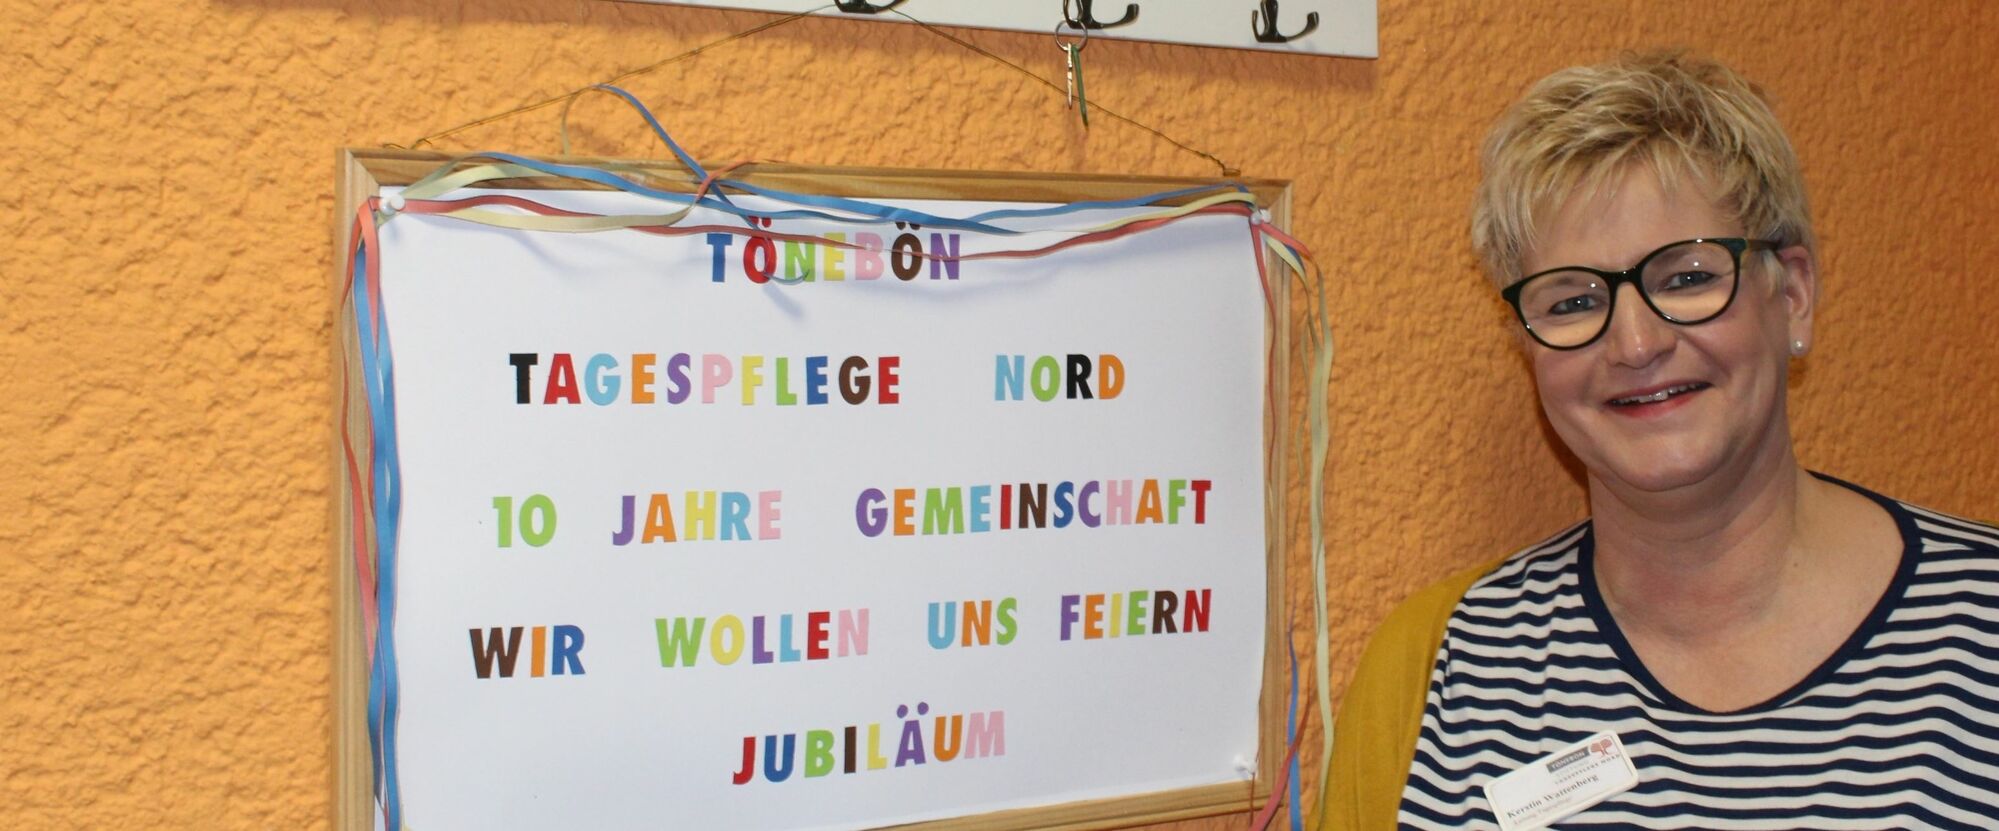 TÖNEBÖN
TAGESPFLEGE NORD
10 JAHRE GEMEINSCHAFT
WIR WOLLEN UNS FEIERN
JUBILÄUM
TÖNEBÖN
TAGESPFLEGE NORD
Kerstin Wattenberg
Leitung Tagespflege